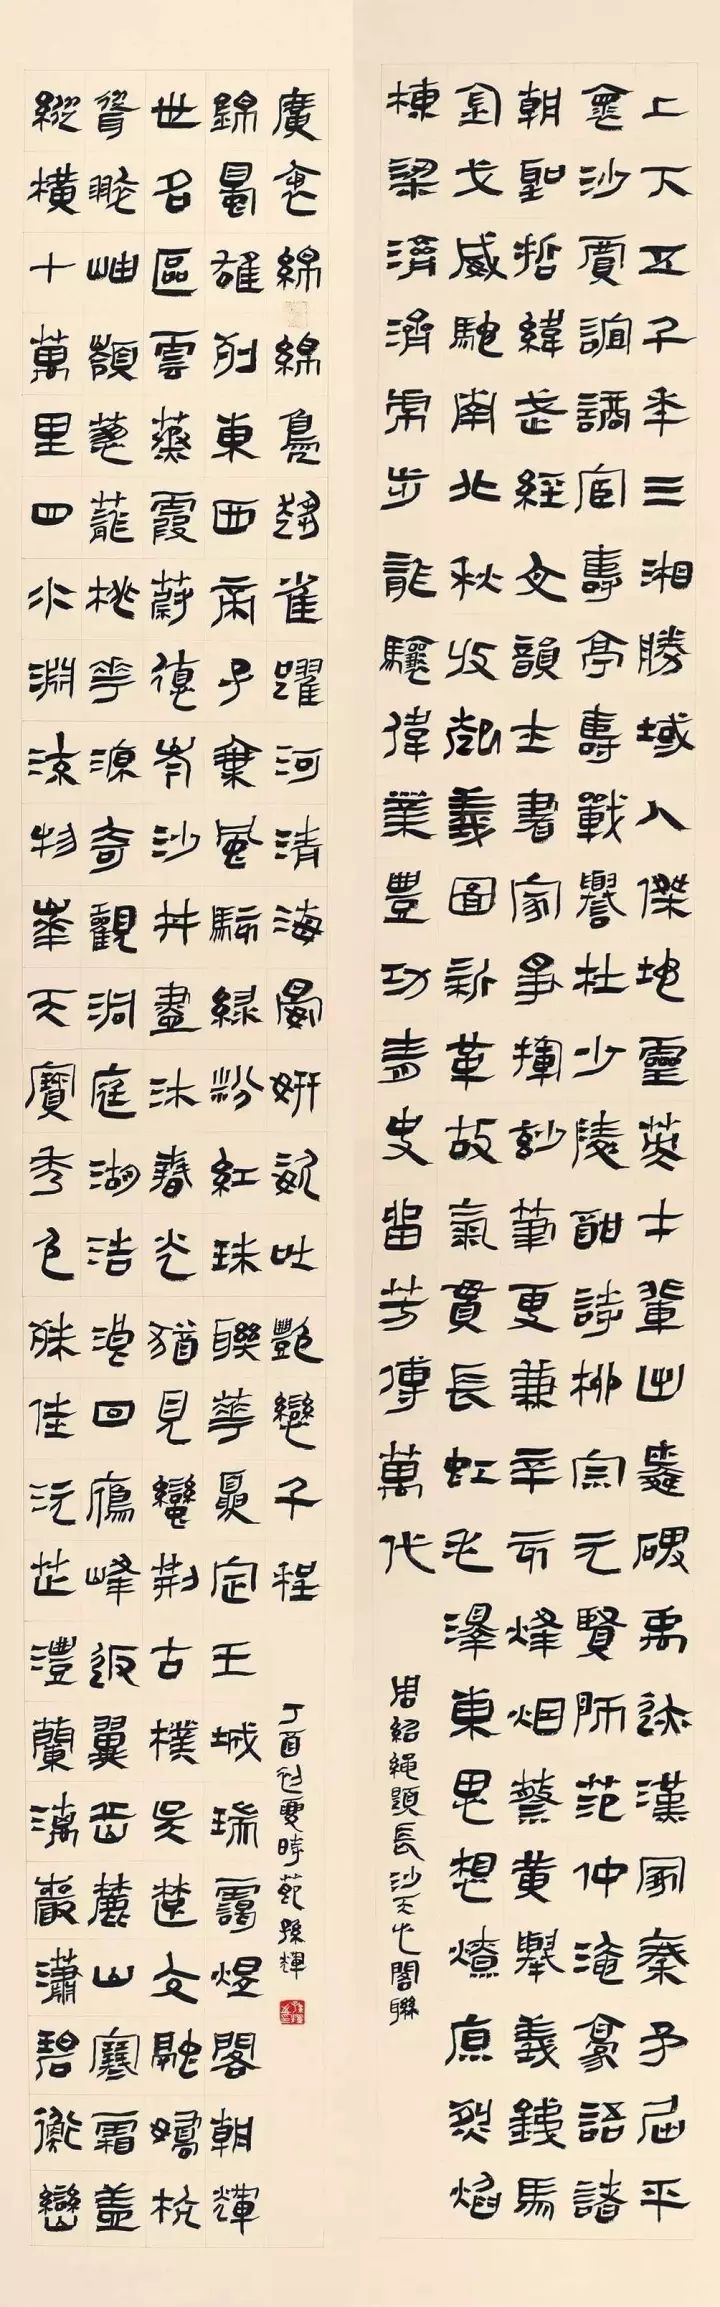 上下五千年三湘勝域人傑地靈英才輩出碑禹跡漢冢秦矛屈平
冤沙賈誼謫宦壽亭壽戰譽杜少陵酣詩柳宗元賢師范仲淹豪語諸
朝聖哲緯武經文韻士書家爭揮妙筆更兼辛亥烽烟蔡黄舉義錢馬
金戈威馳南北秋收起義圖新革故氣貫長虹毛澤東思想燎原烈焰
棟梁濟濟虎步龍驤偉業豐功青史留芳傳萬代
周紹繩題長沙天心閣聯
縱橫十萬里四水淵涼物華天寶秀色殊佳沅芷澧蘭漓巖瀟碧衡巒
聳岫嶺蔥蘢桃花源奇觀洞庭湖浩渺回雁峰返翼岳麓山寒霜蓋
世名區雲蒸霞蔚德岑沙井盡沐春光猶見蠻荆古樸吳楚交融嬌杭
錦雄列東西帝子乘風綠粉紅珠聯華定王城瑞靄煜閣朝輝
廣袤綿綿鳧趨雀躍河清海晏妍姿吐艷戀千程
丁酉初夏時苑孫輝